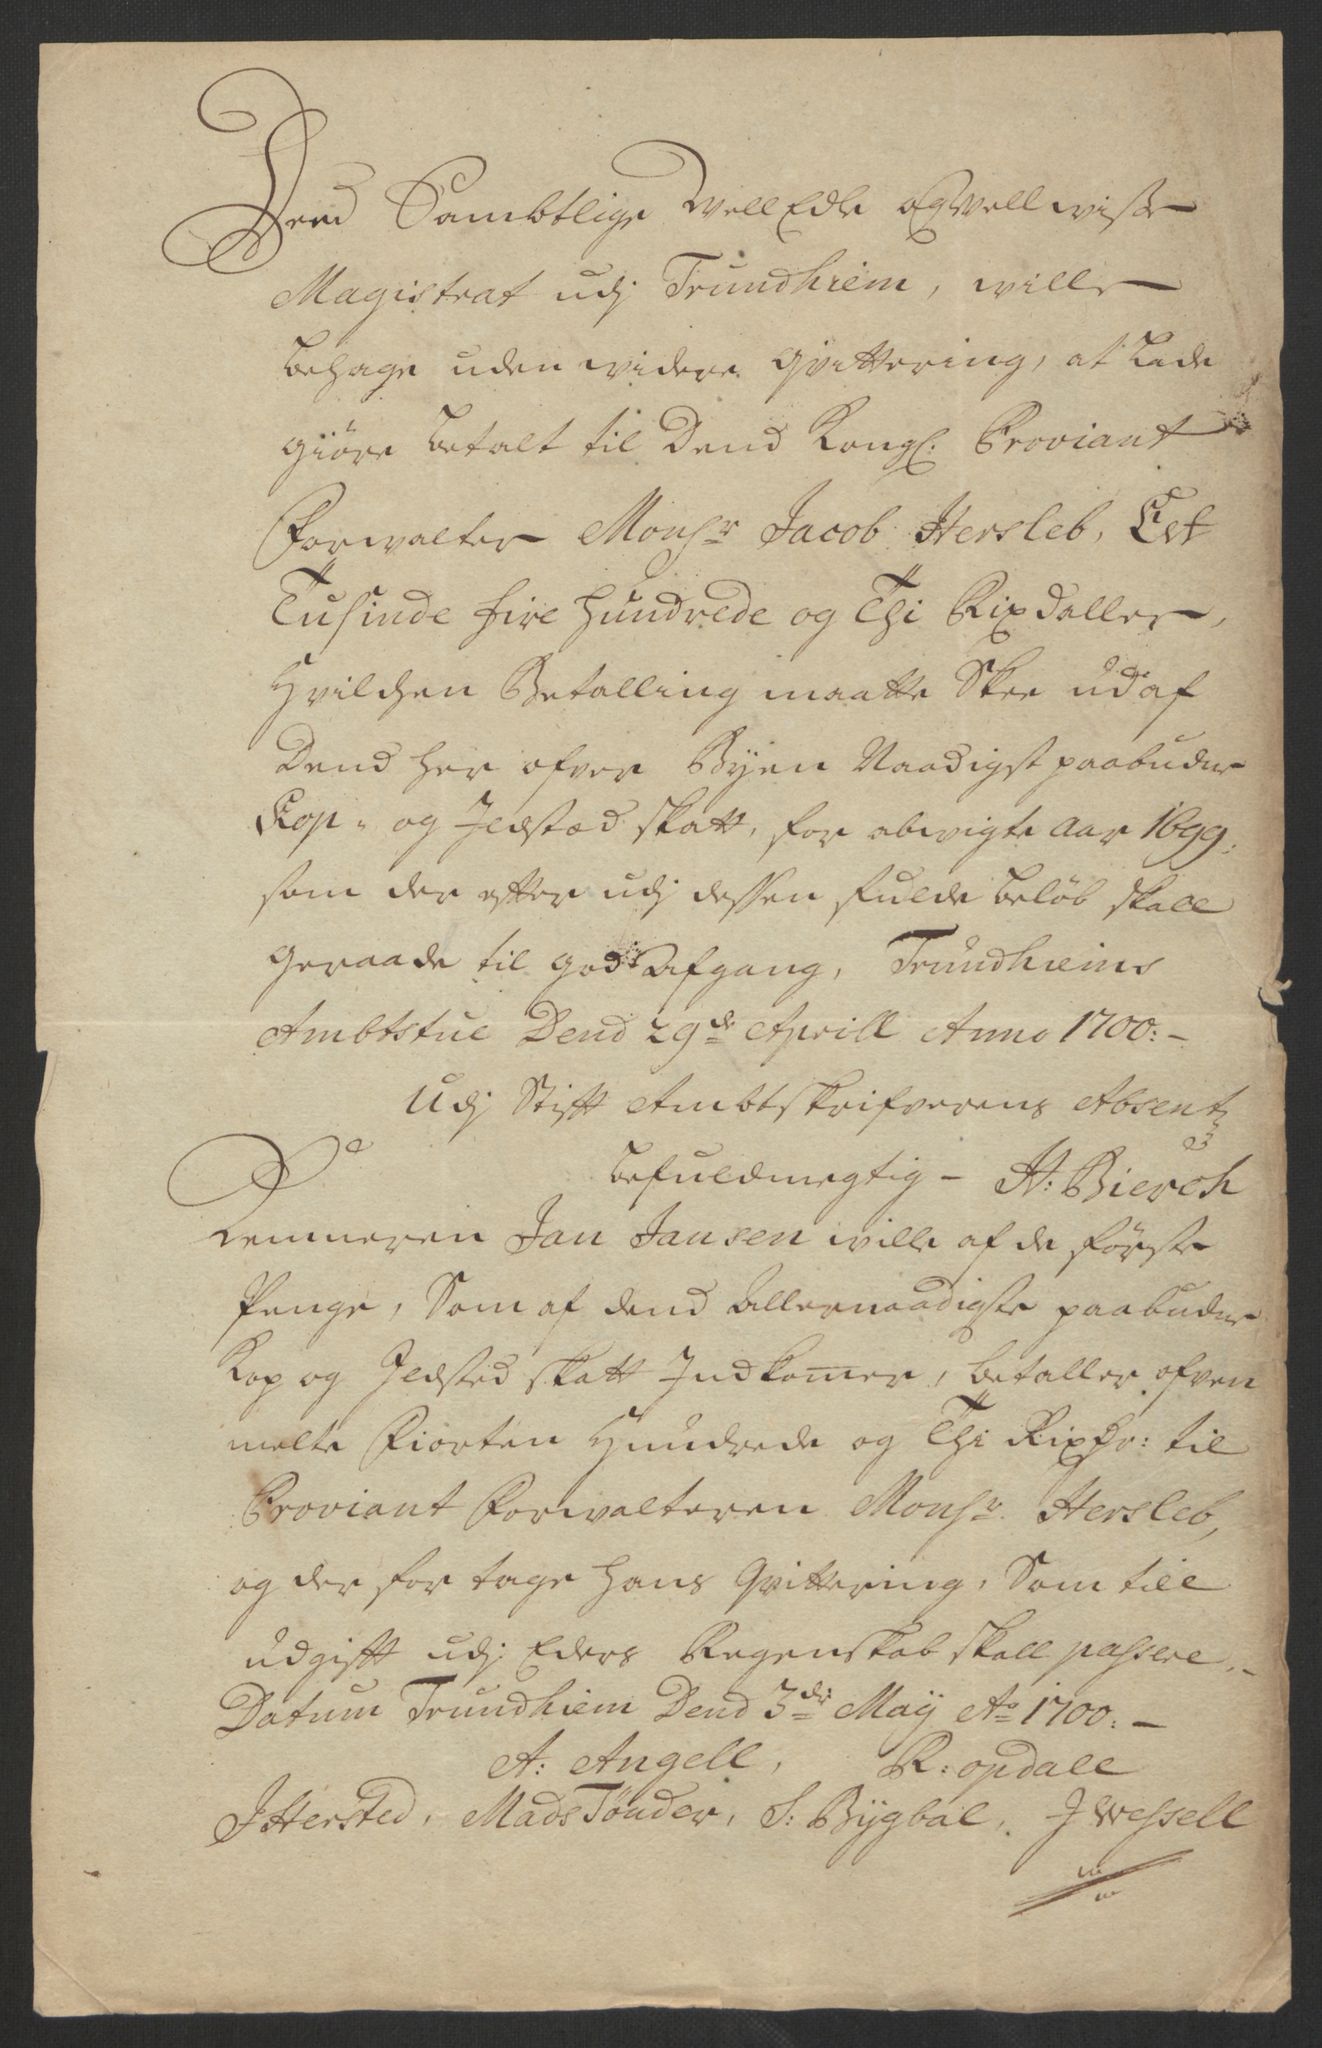 Dend Sambtlige WellEdle og Wellwise
Magistrat udj Trundhiem, wille
behage uden widere qvittering, at lade
giöre betalt til Dend Kongl: Proviant
Forwalter Monsr Jacob Hersleb, Et
Tusinde fire hundrede og Thi Rixdaller,
Hvilchen Betalling maatte Skee ud af
Dend her ofver Byen Naadigst paabudne
Kop- og Ildsted skatt, for abvigte Aar 1699.
som der efter udj dessen fulde beløb skall
geraade til god Afgang, Trundhiems
Ambtstue Dend 29de Aprill Anno 1700:-
Udj Stift Ambtskrifverens Absentz
befuldmegtig - H: Bierch
Kemneren Jan Jansen wille af de første
Penge, Som af dend Allernaadigste paabudne
Kop og Ildsted skatt Indkomer, betaller ofven
melte Fiorten Hundrede og Thi Rixdr: til
Proviant Forwalteren Monsr. Hersleb,
og der for tage hans Qvittering, Som till
udgift udj Eders Regenskab skall passere.-
Datum Trundhiem Dend 3de May Ao 1700:-
A: Angell, R: opdall
J Hersted, Mads Tönder, S: Bygbal, J Wessell